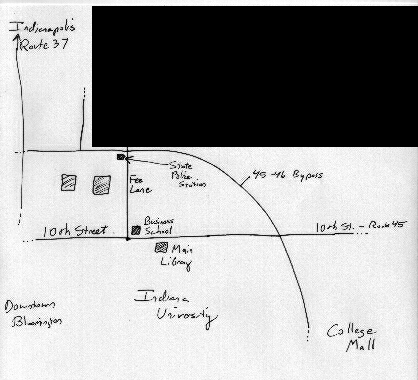 Indianapolis
Route 37
State
Police
Station
Fee
Lane
45-46 Bypass
Business
School
10th Street
10th St. - Route 45
Main
Library
Indiana
Univrosity
Downtown
Bloomington
College
Mall